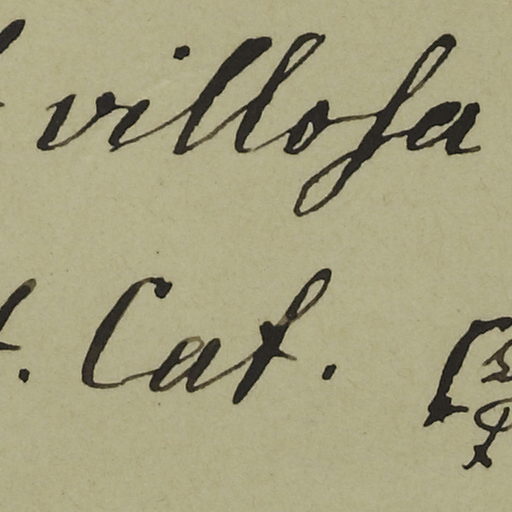 villosa
. Cat.